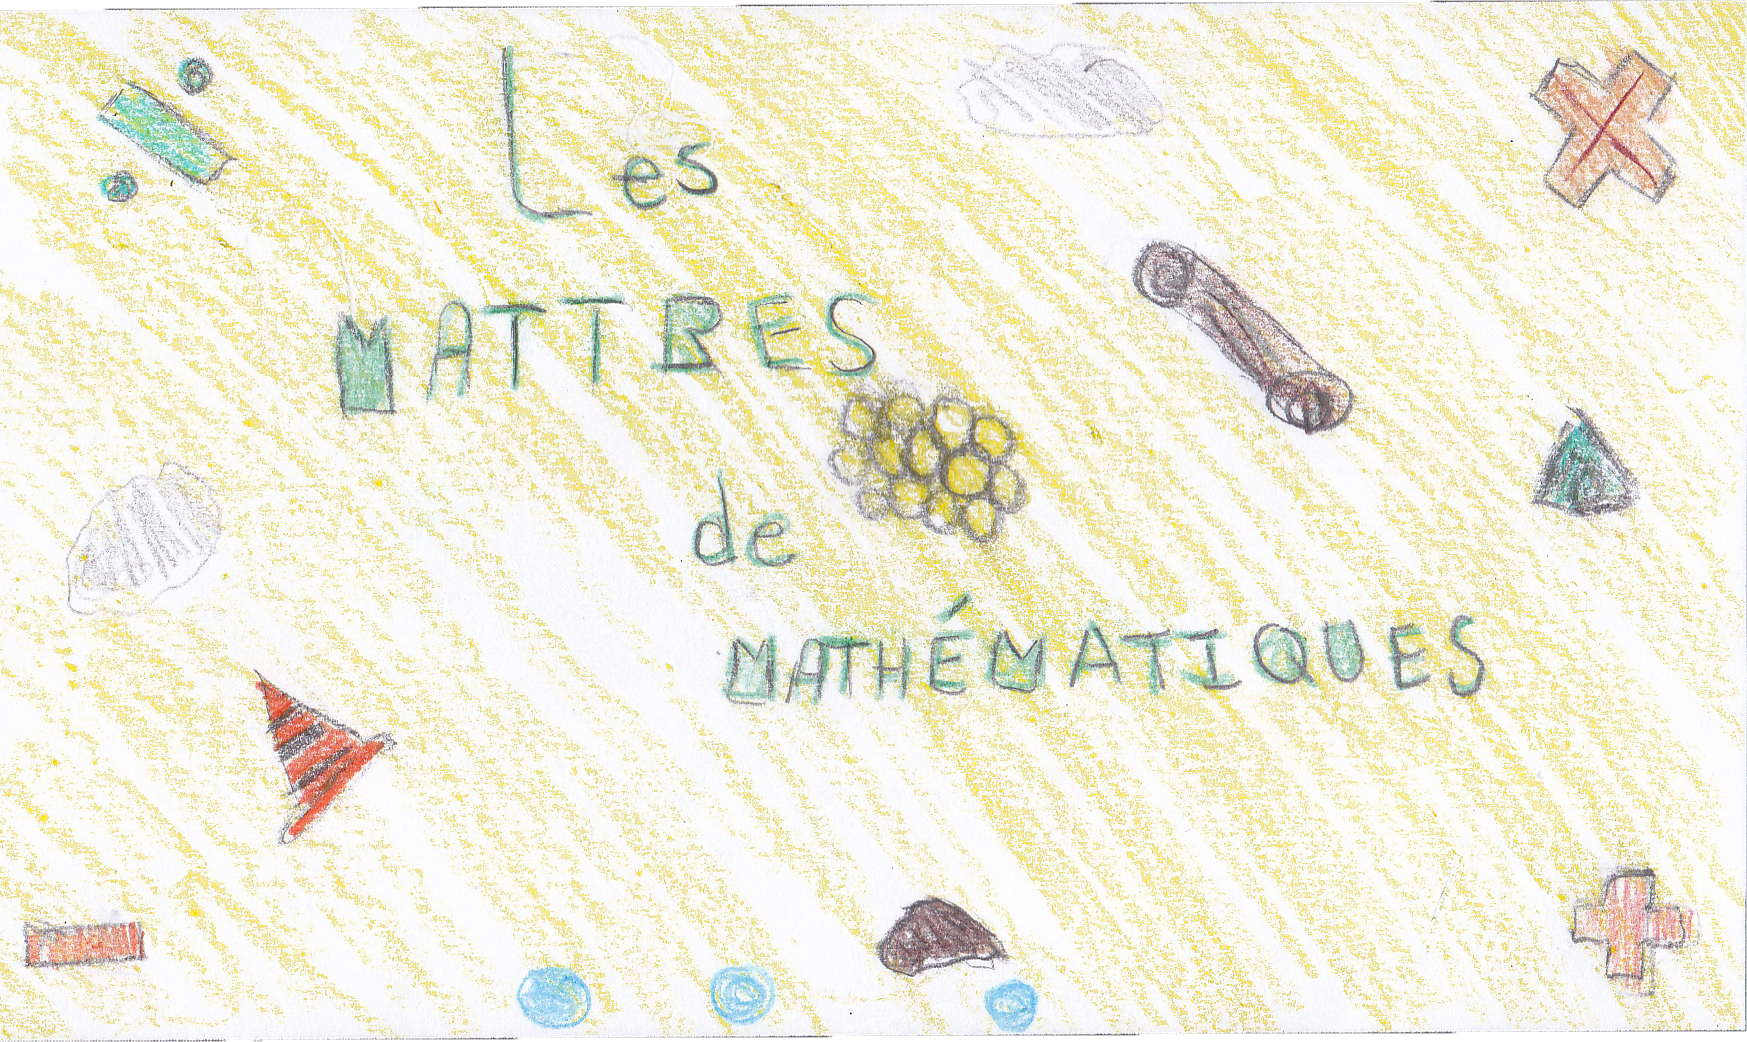 Les
MATTRES
de
MATHÉMATIQUES